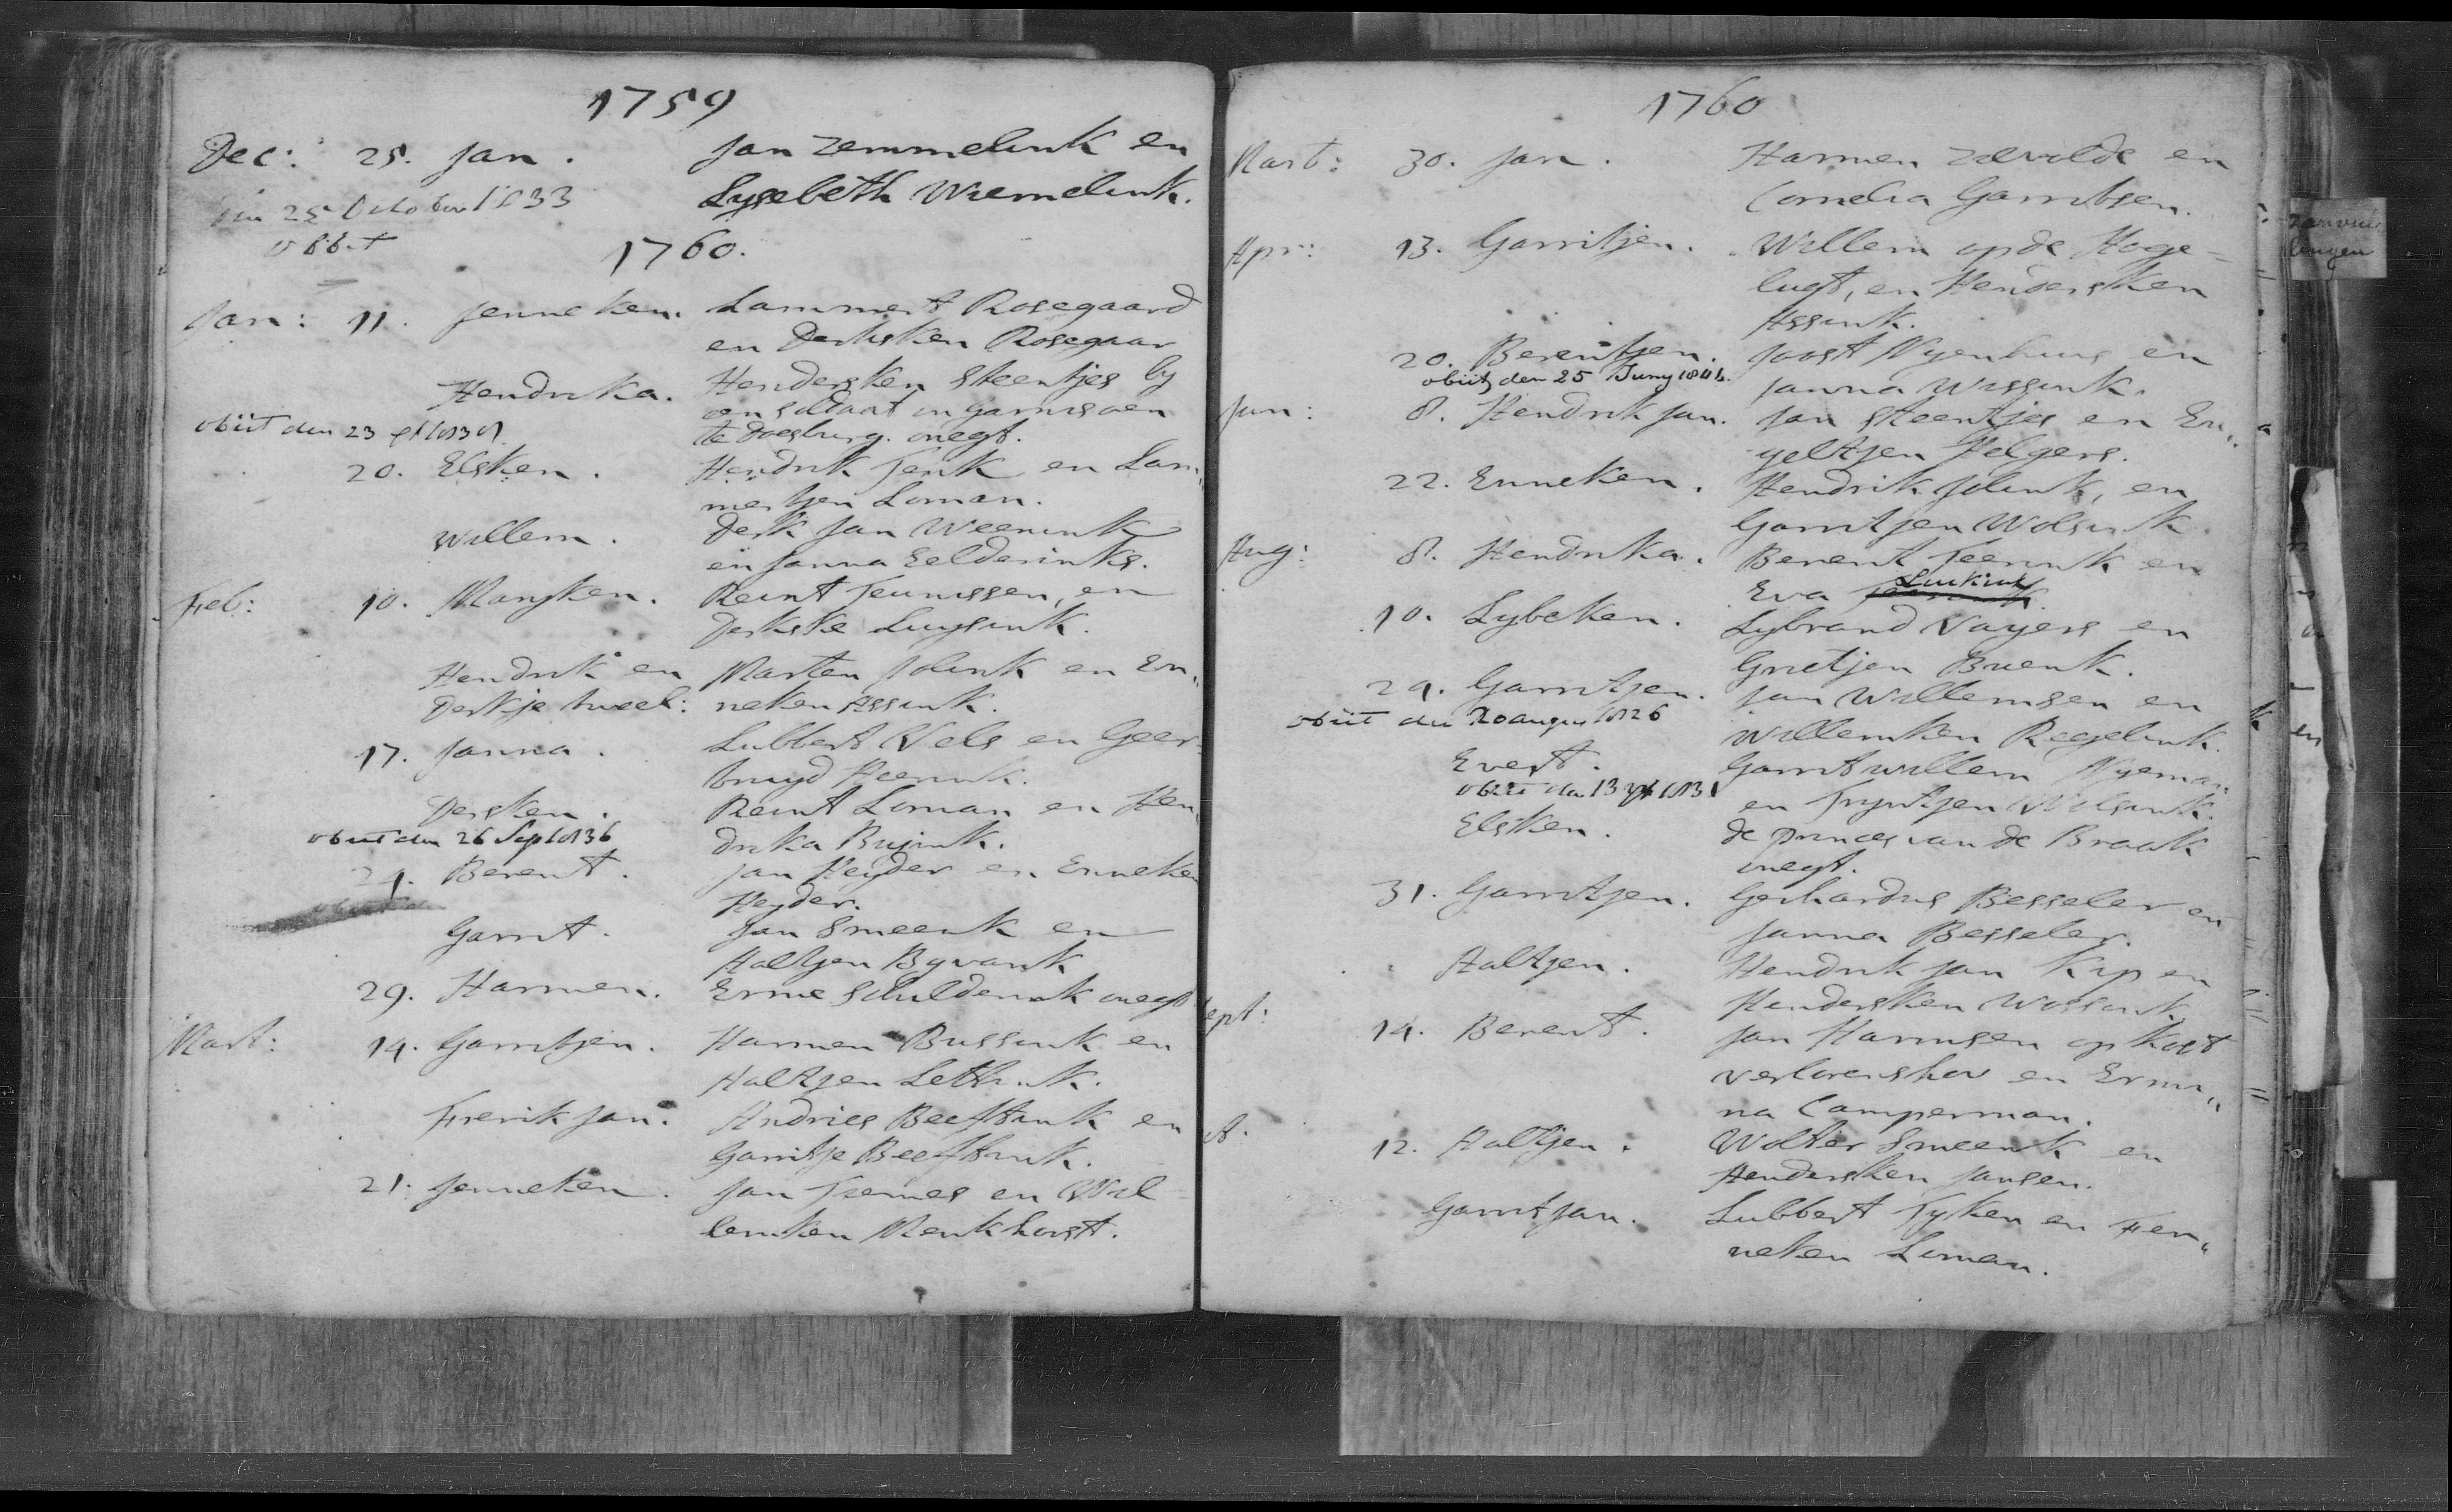 1759
Dec: 25. Jan. Jan Zemmelink en
den 25 October 1833 Lysebeth Wiemelink.
obbit
1760.
Jan: 11. Jenneken. Lammert Rosegaard
en Derksken Rosegaar
Hendrika. Hendersken Steentjes by
een soldaat in garnisoen
obiit den 23 te Doesburg. onegt.
20. Elsken. Hendrik Tenk en Lam„
mertjen Loman.
Willem. Derk Jan Weenink
en Janna Eelderinks.
Feb: 10. Mansken. Reint Teunissen, en
Derkske Luysink.
Hendrik en Marten Jolink en En„
Derkje tweel: neken Assink.
17. Janna. Lubbert Wels en Geer-
truyd Heerink.
Dersken. Reint Loman en Hen„
obiit den 26 Sept 1836 drika Buijink.
24. Berent. Jan Heyder en Enneken
Heyder.
Garrit. Jan Smeenk en
Aaltjen Byvank
29. Harmen. Erme Schuldenok onegt
Mart: 14. Garritjen. Harmen Bussink en
Aaltjen Lethink.
Frerik Jan. Andries Beeftink en
Garritje Beeftink.
21. Jenneken. Jan Tiemes en Wil-
lemken Menkhorst.
1760
Mart: 30. Jan. Harmen Zilvolde en
Cornelia Garritsen.
Apr: 13. Garritjen. Willem op de Hoge-
lugt, en Hendersken
Assink.
20. Berentjen. Joost Nyenhuis en
obiit den 25 Juny 1844. Janna Wissink.
Jun: 8. Hendrik Jan. Jan Steentjes en En„
geltjen Helgers.
22. Enneken. Hendrik Jolink, en
Garritjen Wolsink
Aug: 8. Hendrika. Berent Teerink en
Luikink
Eva
10. Sybeken. Sybrand Vayers en
Grietjen Buenk.
24. Garritjen. Jan Willemsen en
obiit den 20 augus 1826 Willemken Regelink.
Evert. Garrit Willem Nyeman
obiit den 13 en Tryntjen Wolsink.
Elsken. de princes van de Braak
onegt.
31. Garritjen. Gerhardus Besseler en
Janna Besseler.
Aaltjen. Hendrik Jan Kip en
Hendersken Wossink
Sept: 14. Berent. Jan Harmsen op Kost
verlorenshov en Ermi„
na Camperman.
12. Aaltjen. Wolter Smeenk en
Hendersken Jansen.
Garrit Jan. Lubbert Tyken en Fen„
neken Loman.